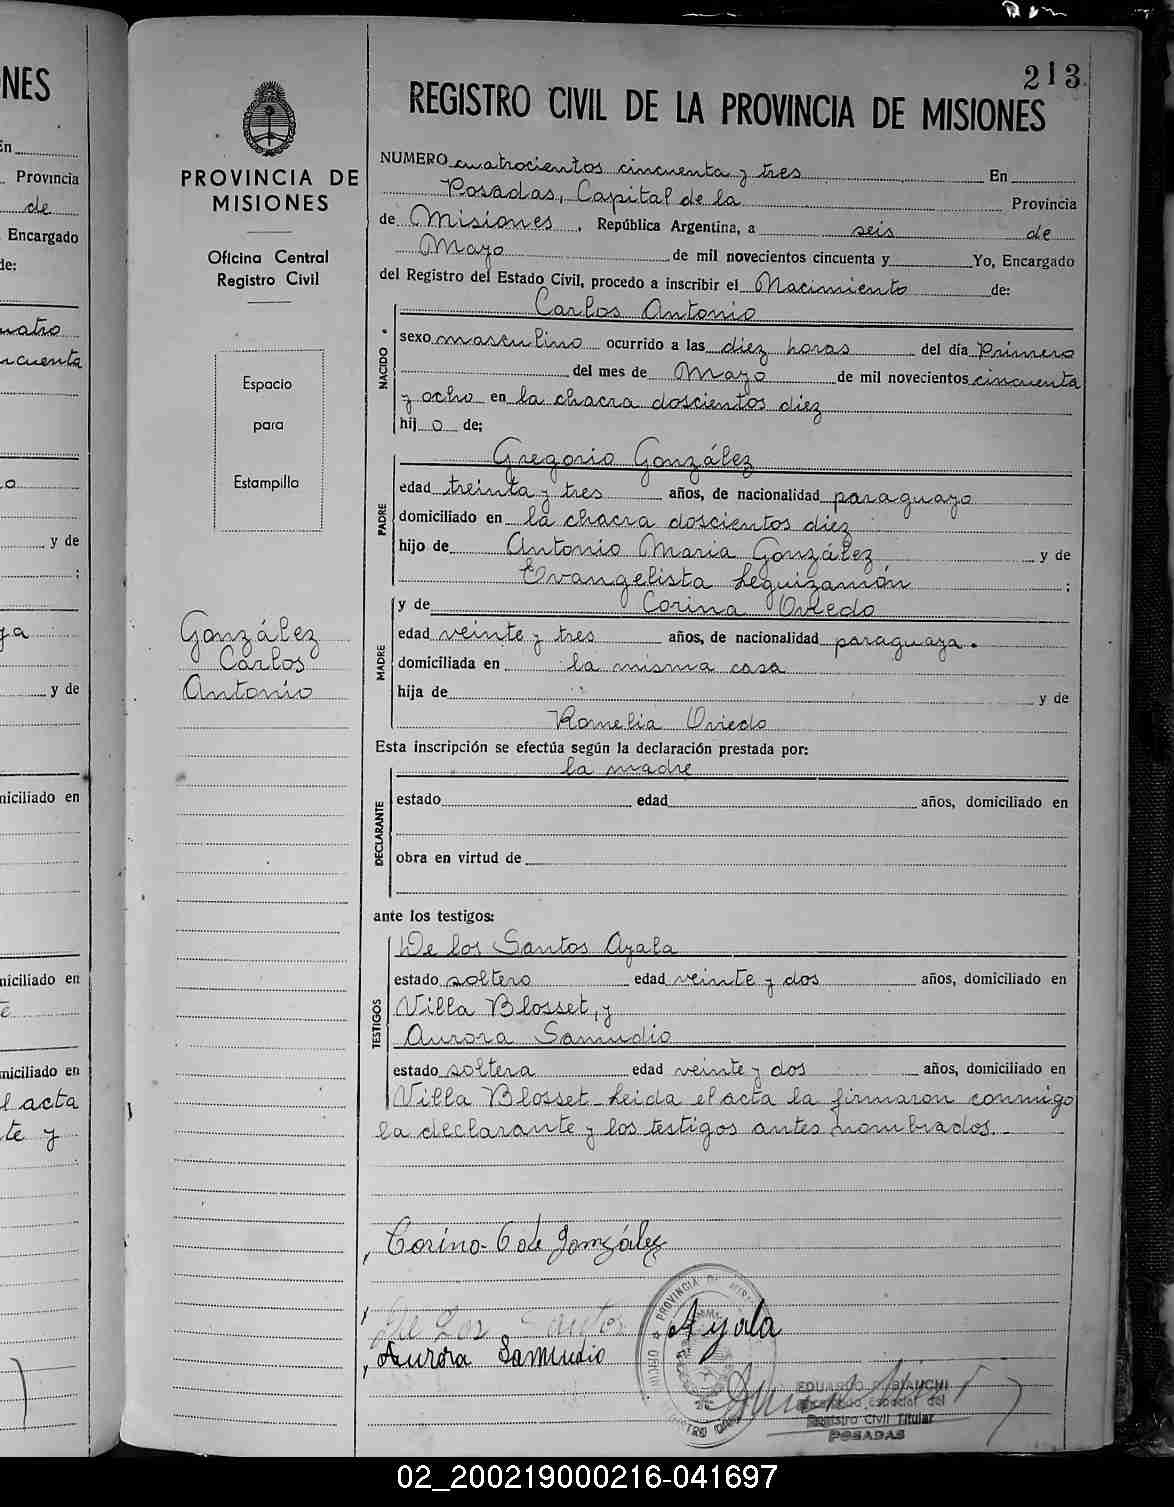 NES
En
Provincia
de
Encargado
de:
uatro
ncuenta
o
y de
;
ya
y de
niciliado en
niciliado en
te
niciliado en
l acta
te y
213
REGISTRO CIVIL DE LA PROVINCIA DE MISIONES
PROVINCIA DE
MISIONES
Oficina Central
Registro Civil
Espacio
para
Estampilla
González
Carlos
Antonio
NUMERO cuatrocientos cincuenta y tres En
Posadas, Capital de la Provincia
de Misiones, República Argentina, a seis de
Mayo de mil novecientos cincuenta y Yo, Encargado
del Registro del Estado Civil, procedo a inscribir el Nacimiento de:
NACIDO
Carlos Antonio
sexo masculino ocurrido a las diez horas del día Primero
del mes de Mayo de mil novecientos cincuenta
y ocho en la chacra doscientos diez
hij o de;
PADRE
Gregorio González
edad treinta y tres años, de nacionalidad paraguayo
domiciliado en la chacra doscientos diez
hijo de Antonio Maria González y de
Evangelista Leguizamón ;
MADRE
y de Corina Oviedo
edad veinte y tres años, de nacionalidad paraguaya.
domiciliada en la misma casa
hija de y de
Romelia Oviedo
Esta inscripción se efectúa según la declaración prestada por:
la madre
DECLARANTE
estado edad años, domiciliado en
obra en virtud de
ante los testigos:
TESTIGOS
De los Santos Ayala
estado soltero edad veinte y dos años, domiciliado en
Villa Blosset, y
Aurora Samudio
estado soltera edad veinte y dos años, domiciliado en
Villa Blosset. Leida el acta la firmaron conmigo
la declarante y los testigos antes nombrados.
Corina O de González
De Los Santos Ayala
Aurora Samudio
PROVINCIA DE
EDUARDO BIANCHI
Encargado especial del
Registro Civil Titular
POSADAS
02_200219000216-041697